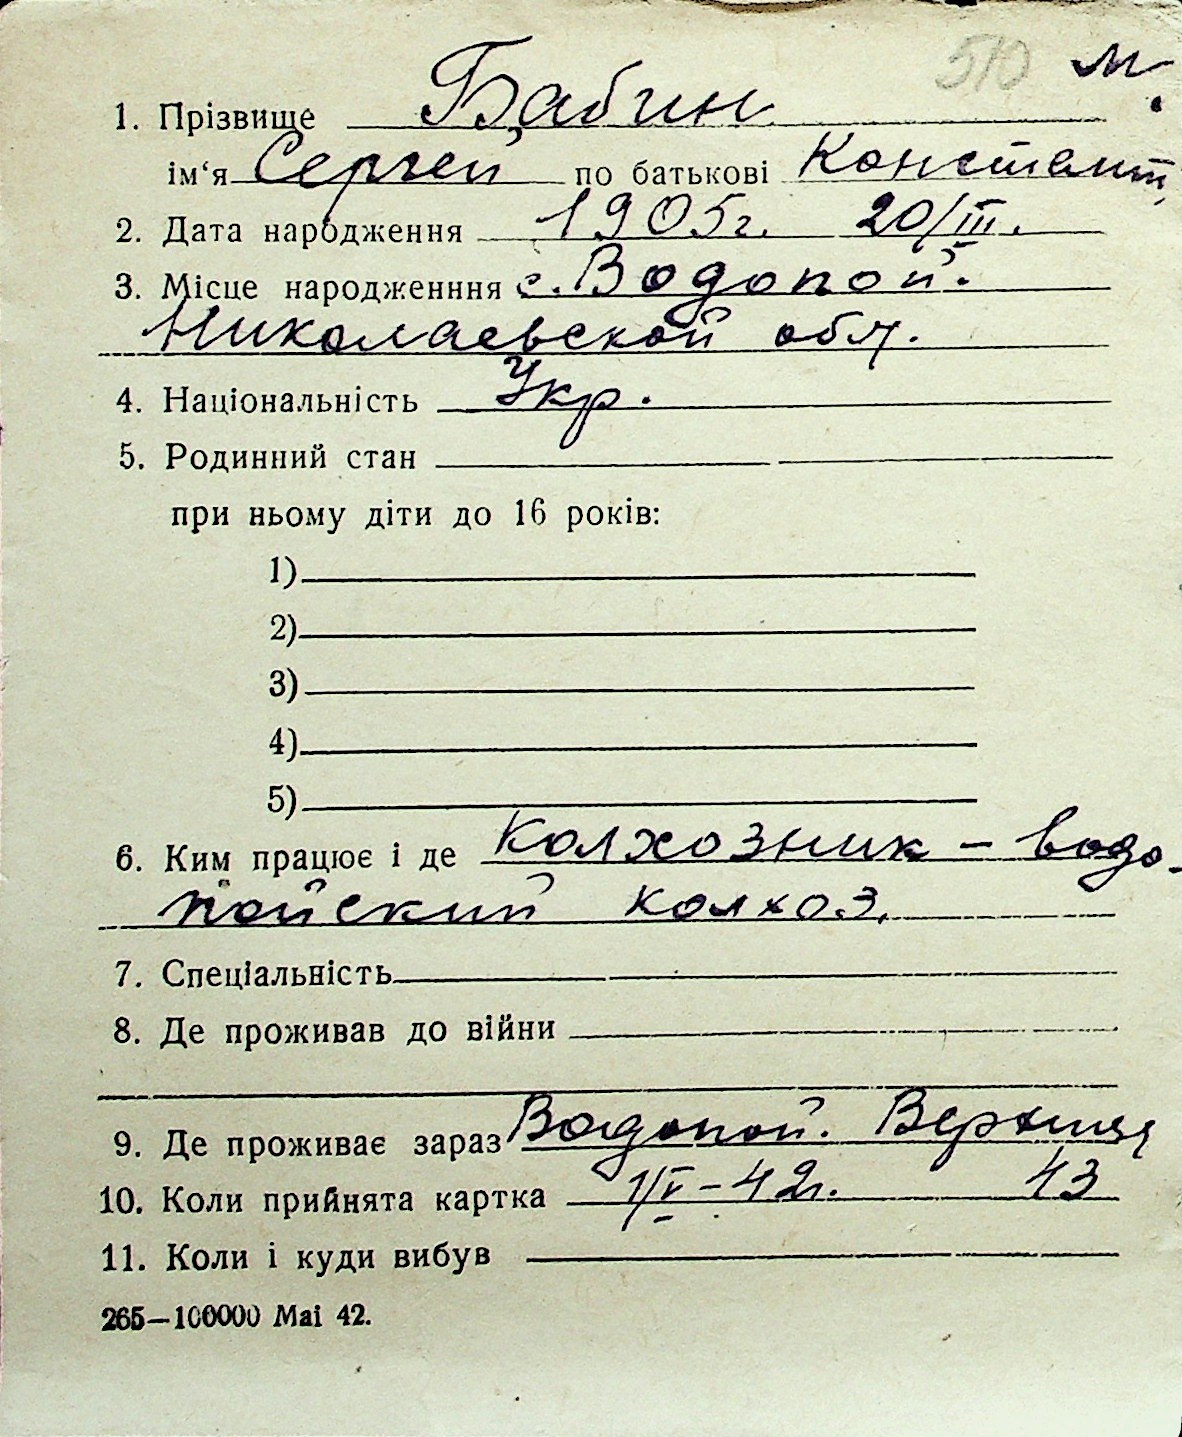 510 м.
1. Прізвище Бабин
ім‘я Сергей по батькові Констант.
2. Дата народження 1905г. 20/III.
3. Місце народженння с. Водопой.
Николаевской обл.
4. Національність Укр.
5. Родинний стан
при ньому діти до 16 років:
1)
2)
3)
4)
5)
6. Ким працює і де Колхозник – Водо-
пойский колхоз.
7. Спеціальність
8. Де проживав до війни
9. Де проживає зараз Водопой. Верхняя
10. Коли прийнята картка 1/V – 42г. 43
11. Коли і куди вибув
265—100000 Mai 42.